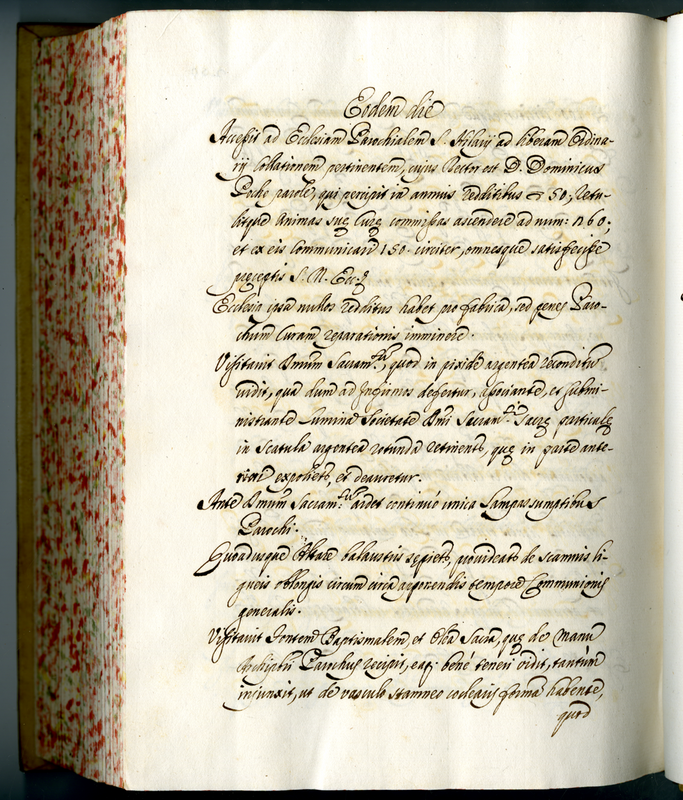 Eodem die
Accessit ad Ecclesiam Parochialem S. Hylarij ad liberam Ordina-
rij Collationem pertinentem, cujus Rector est D. Dominicus
qui percipit in annuis redditibus 50; retu-
litque Animas suę Curę commissas ascendere ad num: 260;
et ex eis Communicari 150 circiter, omnesque satisfecisse
pręceptis S. M. Eccę
Ecclesia ipsa nullos redditus habet pro fabrica, sed penes Paro-
chum Curam reparationis imminere.
Visitavit Smum Sacramtũ, quod in pixide argentea reconditũ
vidit, qua dum ad Infirmos defertur, associante, et submi-
nistrante lumina Societate Smi Sacramti. Sacrę particulę
in scatula argentea rotunda retinentr, quę in parte ante-
riori expolietr, et deauretur.
Ante Smum Sacramtũ ardet continuò unica Lampas sumptibus
Parochi.
Quoadusque Altare balaustris sępietr, provideatr de scamnis li-
gneis oblongis circum circa apponendis tempore Communionis
generalis.
Visitavit Fontem Baptismalem, et Olea Sacra, quę de manu
Archiprti Parochus recipit, eaq; bene teneri vidit, tantùm
injunxit, ut de vasculo stamneo coclearis forma habente,
quod